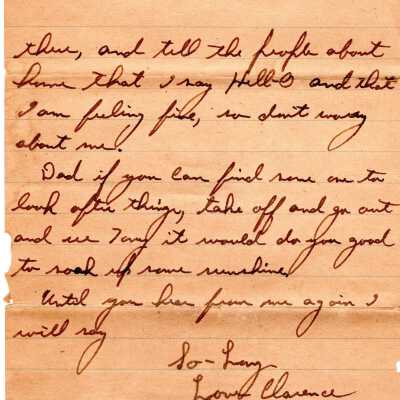 there, and tell the people about
home that I say Hell-O and that
I am feeling fine, so don't worry
about me.
Dad if you can find some one to
look after things, take off and go out
and see Tony it would do you good
to soak up some sunshine.
Until you hear from me again I
will say
So-Long
Love Clarence